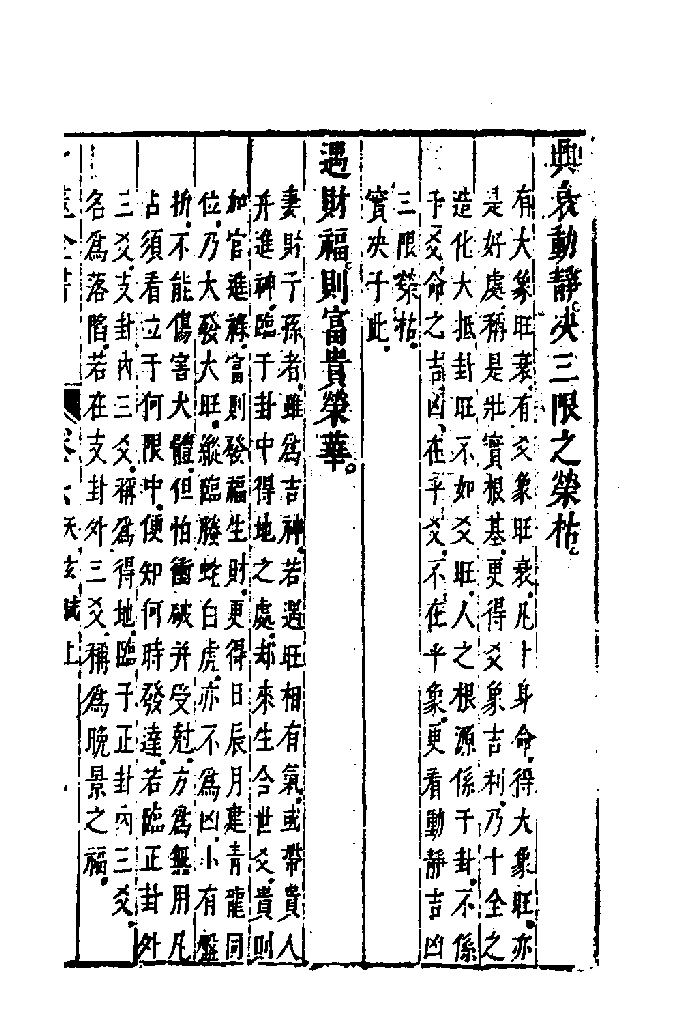 興衰動靜决三限之榮枯
有大象旺衰有爻象旺衰凡卜身命得大象旺亦
是好處稱是壯實根基更得爻象吉利乃十全之
造化大抵卦旺不如爻旺人之根源係于卦不係
于爻命之吉凶在乎爻不在乎象更看動靜吉凶
三限榮枯
實决于此
遇財福則富貴榮華
妻財子孫者雖爲吉神若遇旺相有氣或帶貴人
并進神臨于卦中得地之處却來生合世爻貴則
加官進祿富則發福生財更得日辰月建青龍同
位乃大發大旺縱臨螣蛇白虎亦不爲凶小有盤
折不能傷害大體但怕衝破并受尅方爲無用凡
占須看立于何限中便知何時發達若臨正卦外
三爻支卦內三爻稱爲得地臨于正卦內三爻
名爲落陷若在支卦外三爻稱爲晚景之福
全書 卷 上